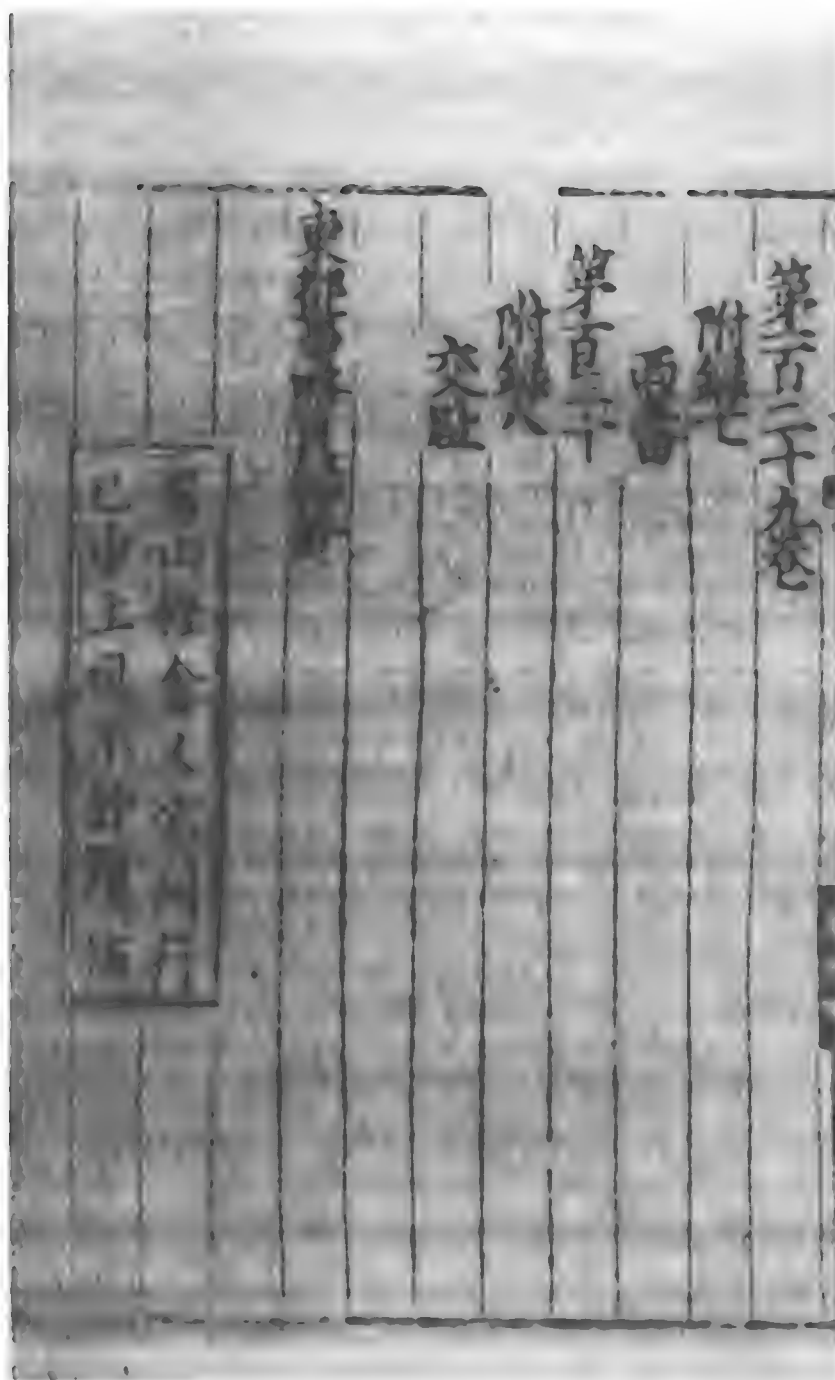 第一百二十九卷
附錄七
西蕃
第百三十
附錄八
交趾
東都事略目錄
眉山程舍人宅刊行
已申上司不許覆板